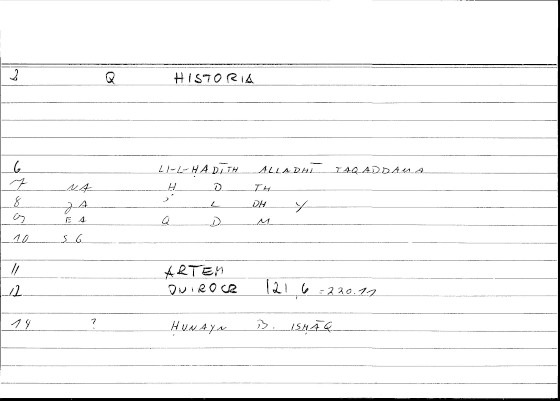 3 Q HISTORIA
6 LI-L-ḤADĪTH ALLADHĪ TAQADDAMA
7 NA Ḥ D TH
8 L DH Y
9 EA Q D M
10 SG
11 ARTEM
12 ONIROCR 121,6 = 220.11
14 ? ḤUNAYN B. ISḤĀQ